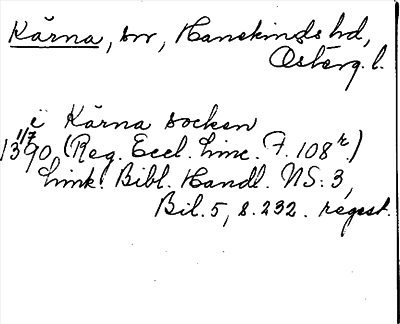 Kärna, sn, Hanekinds hd,
Österg. l.
i Kärna socken
1/7
1390 (Reg. Eccl. Linc. F. 108r.)
Link. Bibl. Handl. NS. 3,
Bil. 5, s. 232. regest.